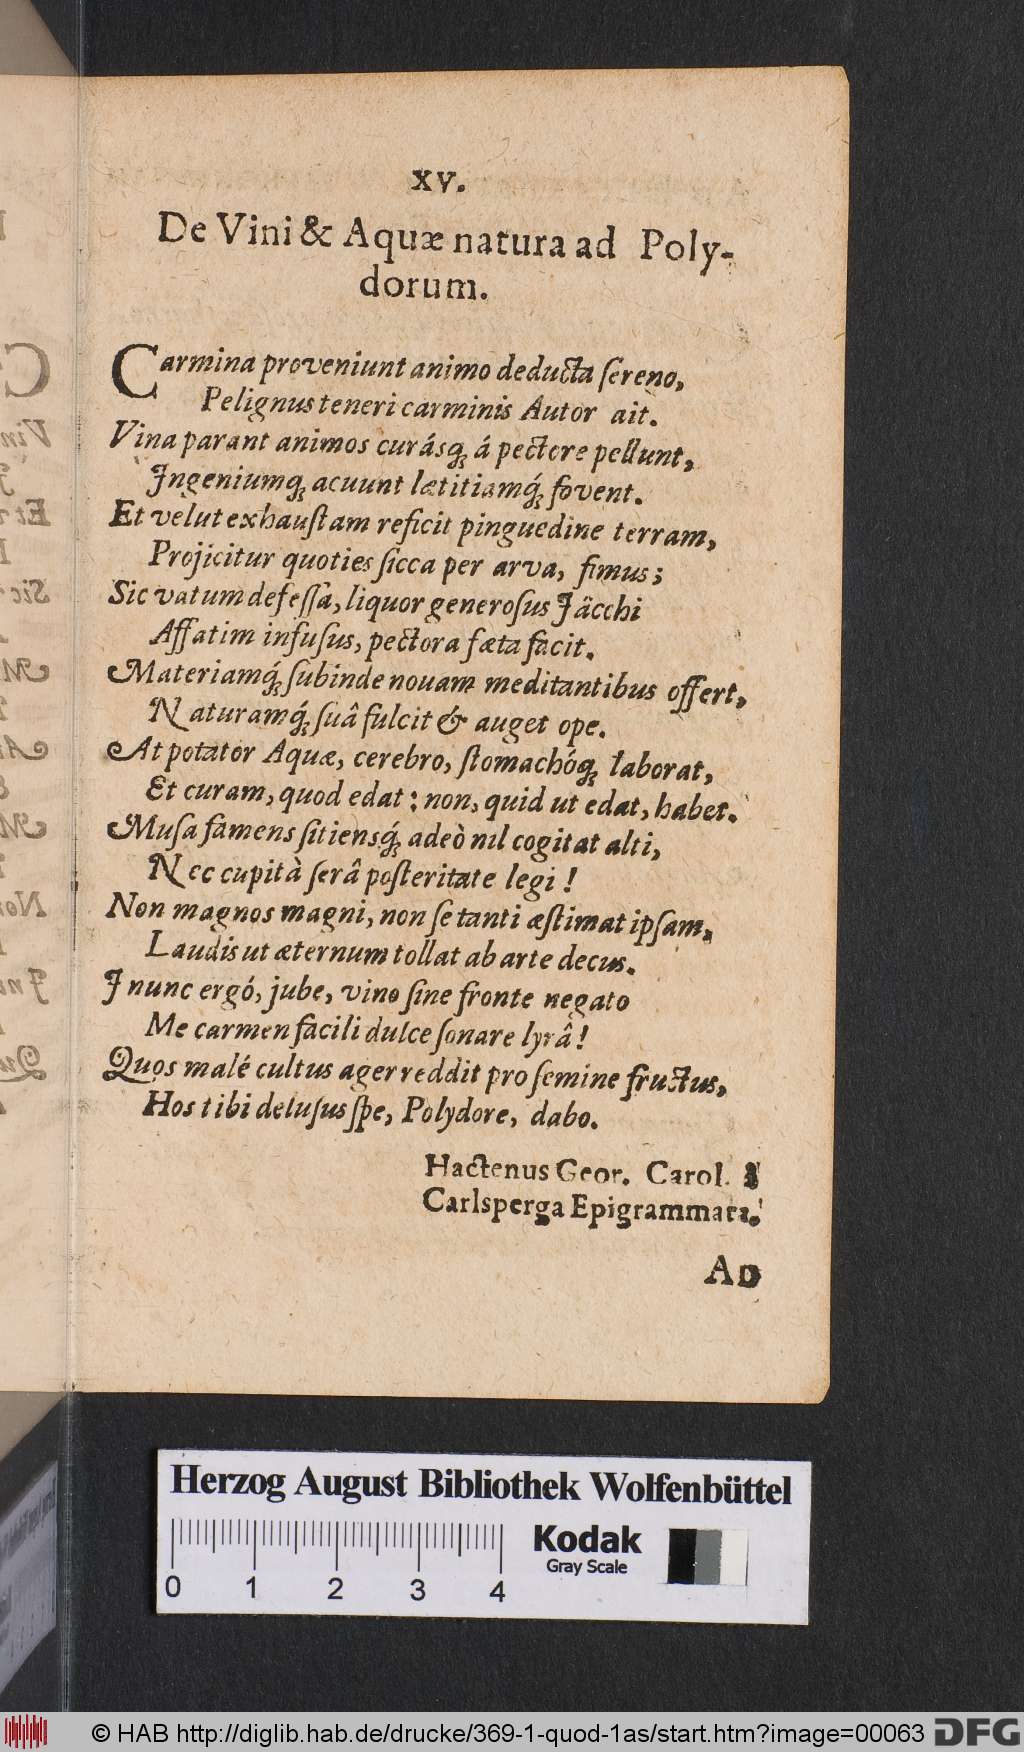 XV.
De Vini & Aquæ natura ad Poly-
dorum.
Carmina proveniunt animo deducta sereno,
Pelignus teneri carminis Autor ait.
Vina parant animos curásq́; á pectore pellunt,
Ingeniumq́; acuunt lætitiamq́; fovent.
Et velut exhaustam reficit pinguedine terram,
Projicitur quoties sicca per arva, fimus;
Sic vatum defessa, liquor generosus Jäcchi
Affatim infusus, pectora fæta facit.
Materiamq́; subinde nouam meditantibus offert,
Naturamq́; suâ fulcit & auget ope.
At potator Aquæ, cerebro, stomachóq; laborat,
Et curam, quod edat: non, quid ut edat, habet.
Musa famens sitiensq́; adeò nil cogitat alti,
Nec cupit à serâ posteritate legi!
Non magnos magni, non se tanti æstimat ipsam,
Laudis ut æternum tollat ab arte decus.
I nunc ergó, jube, vino sine fronte negato
Me carmen facili dulce sonare lyrâ!
Quos malé cultus ager reddit pro semine fructus,
Hos tibi delusus spe, Polydore, dabo.
Hactenus Geor. Carol. à
Carlsperga Epigrammata.
AD
Herzog August Bibliothek Wolfenbüttel
Kodak
Gray Scale
0 1 2 3 4
© HAB http://diglib.hab.de/drucke/369-1-quod-1as/start.htm?image=00063 DFG